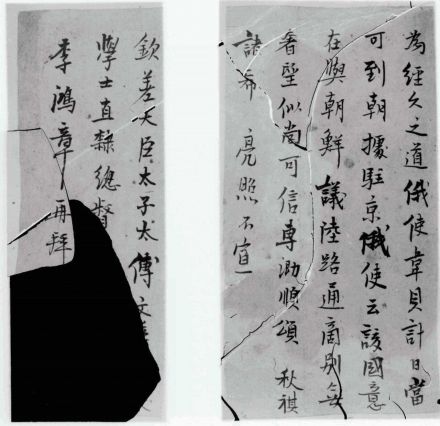 為經久之道俄使韋貝計日當
可到朝據駐京俄使云該國意
在與朝鮮議陸路通商別無
奢望似尚可信專泐順頌 秋祺
諸希 亮照不宣
欽差大臣太子太傅文
學士直隸總督
李鴻章再拜